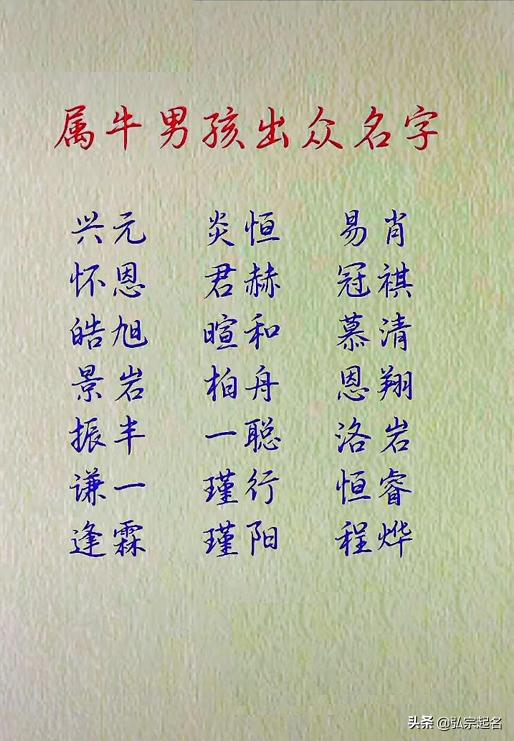 属牛男孩出众名字
兴元 炎恒 易肖
怀恩 君赫 冠祺
皓旭 暄和 慕清
景岩 柏舟 恩翔
振半 一聪 洛岩
谦一 瑾行 恒睿
逢霖 瑾阳 程烨
头条 @弘宗起名